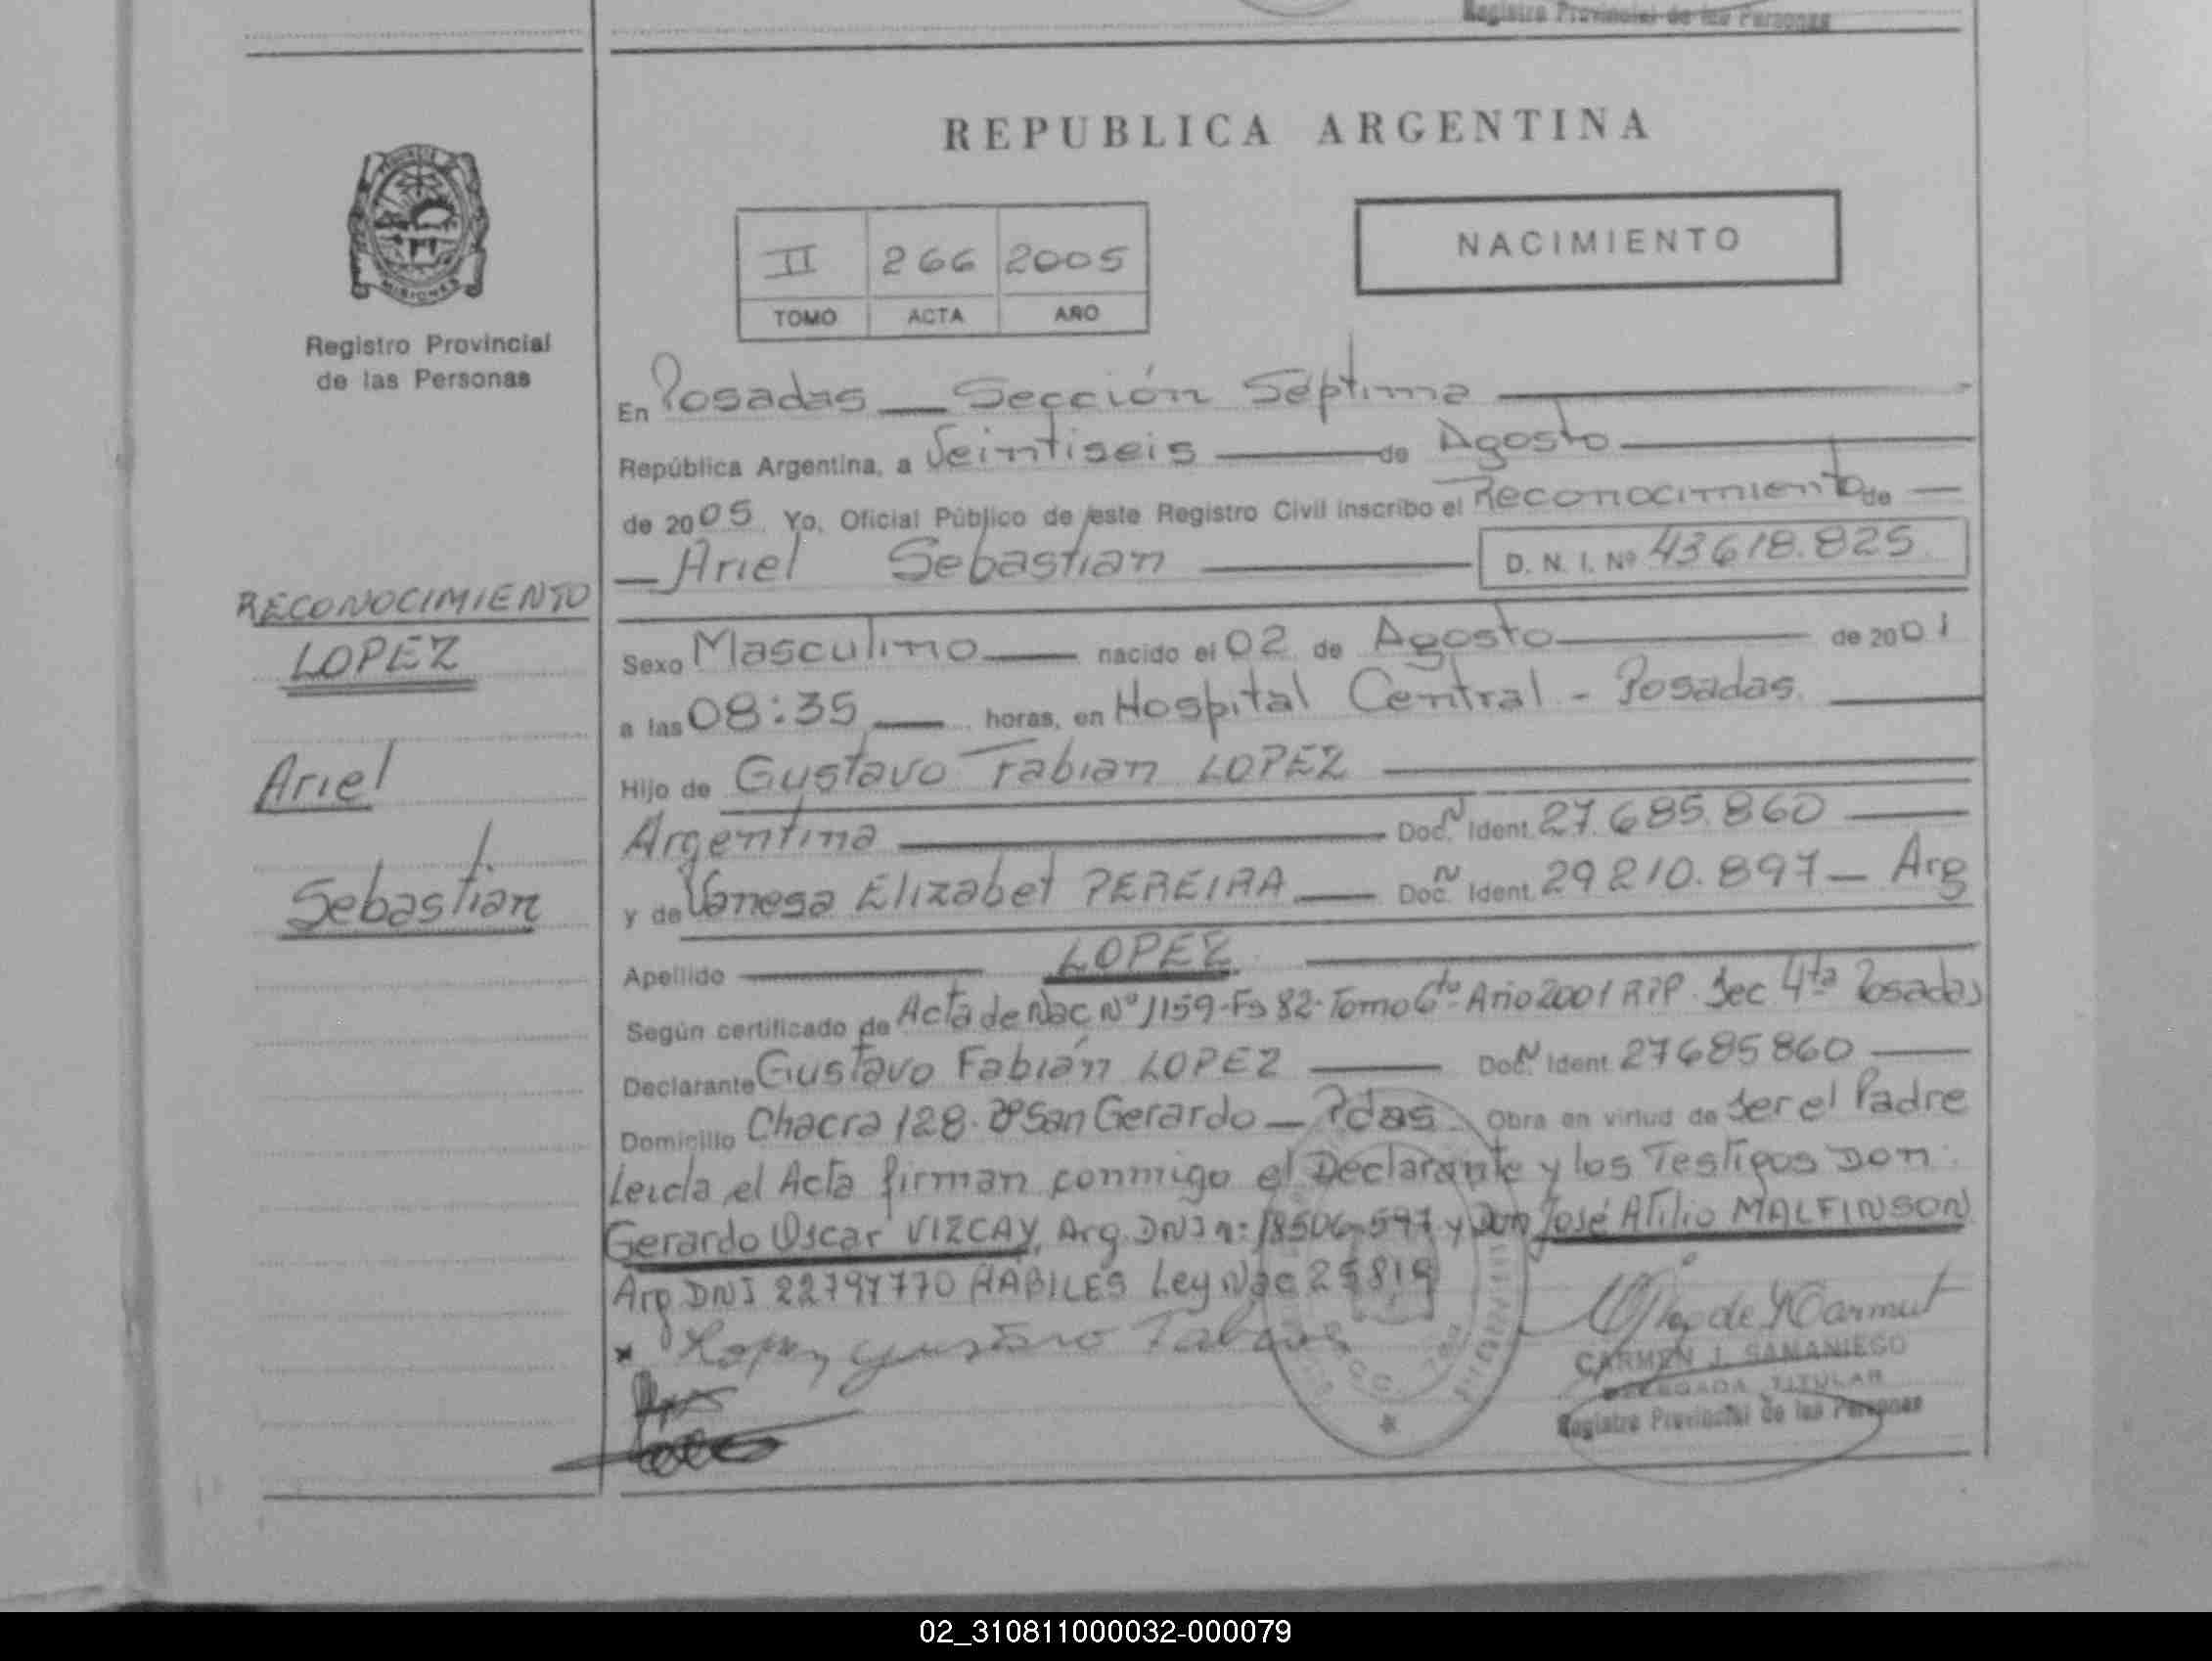 Registro Provincial de las Personas
REPUBLICA ARGENTINA
MISIONES
Registro Provincial
de las Personas
II 266 2005
TOMO ACTA AÑO
NACIMIENTO
En Posadas — Sección Séptima
República Argentina, a Veintiseis de Agosto
de 2005 Yo, Oficial Público de este Registro Civil inscribo el Reconocimiento de
Ariel Sebastian D. N. I. Nº 43618.825
RECONOCIMIENTO
LOPEZ
Ariel
Sebastian
Sexo Masculino nacido el 02 de Agosto de 2001
a las 08:35 horas, en Hospital Central - Posadas.
Hijo de Gustavo Fabian LOPEZ
Argentina Doc. N Ident. 27.685.860
y de Vanesa Elizabet PEREIRA Doc. N Ident. 29210.897 — Arg
Apellido LOPEZ
Según certificado de Acta de Nac Nº 1159-Fs 82-Tomo 6to - Año 2001 RPP. Sec 4ta Posadas
Declarante Gustavo Fabián LOPEZ Doc. N Ident. 27685860
Domicilio Chacra 128. Bº San Gerardo — Pdas Obra en virtud de Ser el Padre
Leida el Acta firman conmigo el Declarante y los Testigos Don:
Gerardo Oscar VIZCAY, Arg. DNI n: 18506.597 y Don José Atilio MALFINSON
Arg DNI 22797770 HABILES Ley Nac 25819
Lopez Gustavo Fabian
CARMEN J. SAMANIEGO
DELEGADA TITULAR
Registro Provincial de las Personas
02_310811000032-000079